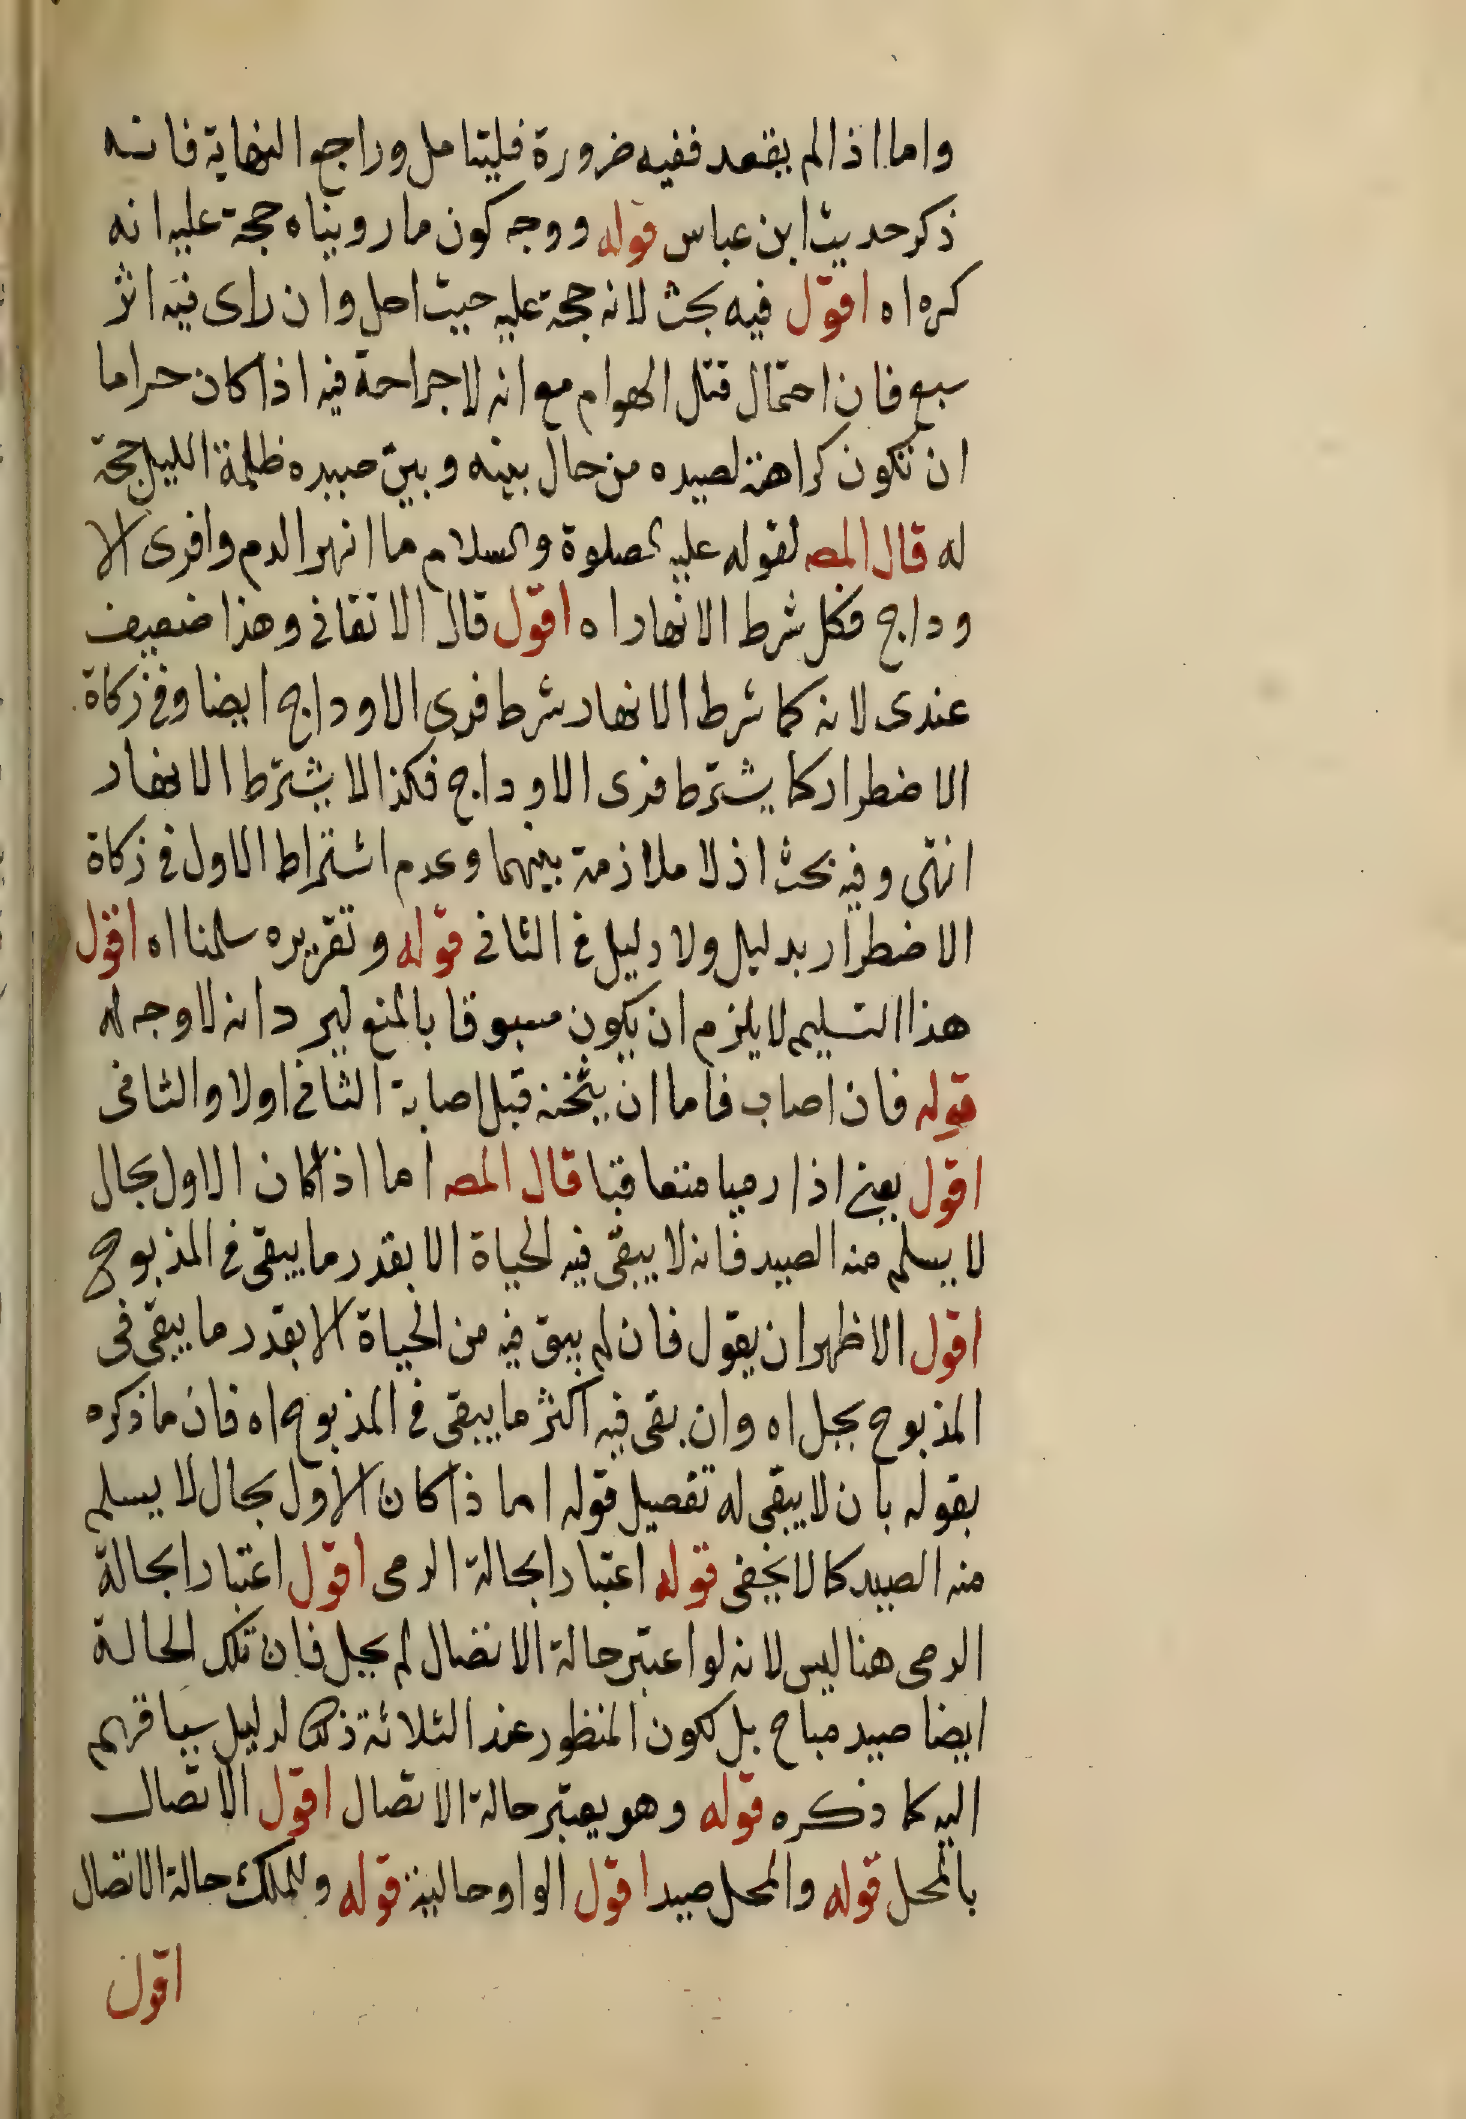 واما اذا لم يقعد ففيه ضرورة فليتامل وراجع النهاية فانه
ذكر حديث ابن عباس قوله ووجه كون ما رويناه حجة عليه انه
كره اه اقول فيه بحث لانه حجة عليه حيث احل وان راى فيه اثر
سبع فان احتمال قتل الهوام مع انه لا جراحة فيه اذا كان حراما
ان تكون كراهته لصيده من حال بينه وبين صيده ظلمة الليل حجة
له قال المص لقوله عليه الصلوة والسلام ما انهر الدم وافرى الا
وداج فكل شرط الانهار اه اقول قال الاتقانى وهذا ضعيف
عندى لانه كما شرط الانهار شرط فرى الاوداج ايضا وفى زكاة
الاضطرار كما يشترط فرى الاوداج فكذا لا يشترط الانهار
انتهى وفيه بحث اذ لا ملازمة بينهما وعدم اشتراط الاول فى زكاة
الاضطرار بدليل ولا دليل فى الثانى قوله وتقريره سلمنا اه اقول
هذا التسليم لا يلزم ان يكون مسبوقا بالمنع ليرد انه لا وجه له
قوله فان اصاب فاما ان يثخنه قبل اصابة الثانى اولا والثانى
اقول يعنى اذا رميا متعاقبا قال المص اما اذا كان الاول بحال
لا يسلم منه الصيد فانه لا يبقى فيه الحياة الا بقدر ما يبقى فى المذبوح
اقول الاظهر ان يقول فان لم يبق فيه من الحياة الا بقدر ما يبقى فى
المذبوح يحل اه وان بقى فيه اكثر ما يبقى فى المذبوح اه فان ما ذكره
بقوله بان لا يبقى له تفصيل قوله اما ذا كان الاول بحال لا يسلم
منه الصيد كما لا يخفى قوله اعتبارا بحالة الرمى اقول اعتبارا بحالة
الرمى هنا ليس لانه لو اعتبر حالة الاتصال لم يحل فان تلك الحالة
ايضا صيد مباح بل لكون المنظور عند الثلاثة ذلك لدليل سياقهم
اليه كما ذكره قوله وهو يعتبر حالة الاتصال اقول الاتصال
بالمحل قوله والمحل صيد اقول الواو حالية قوله وللملك حالة الاتصال
اقول